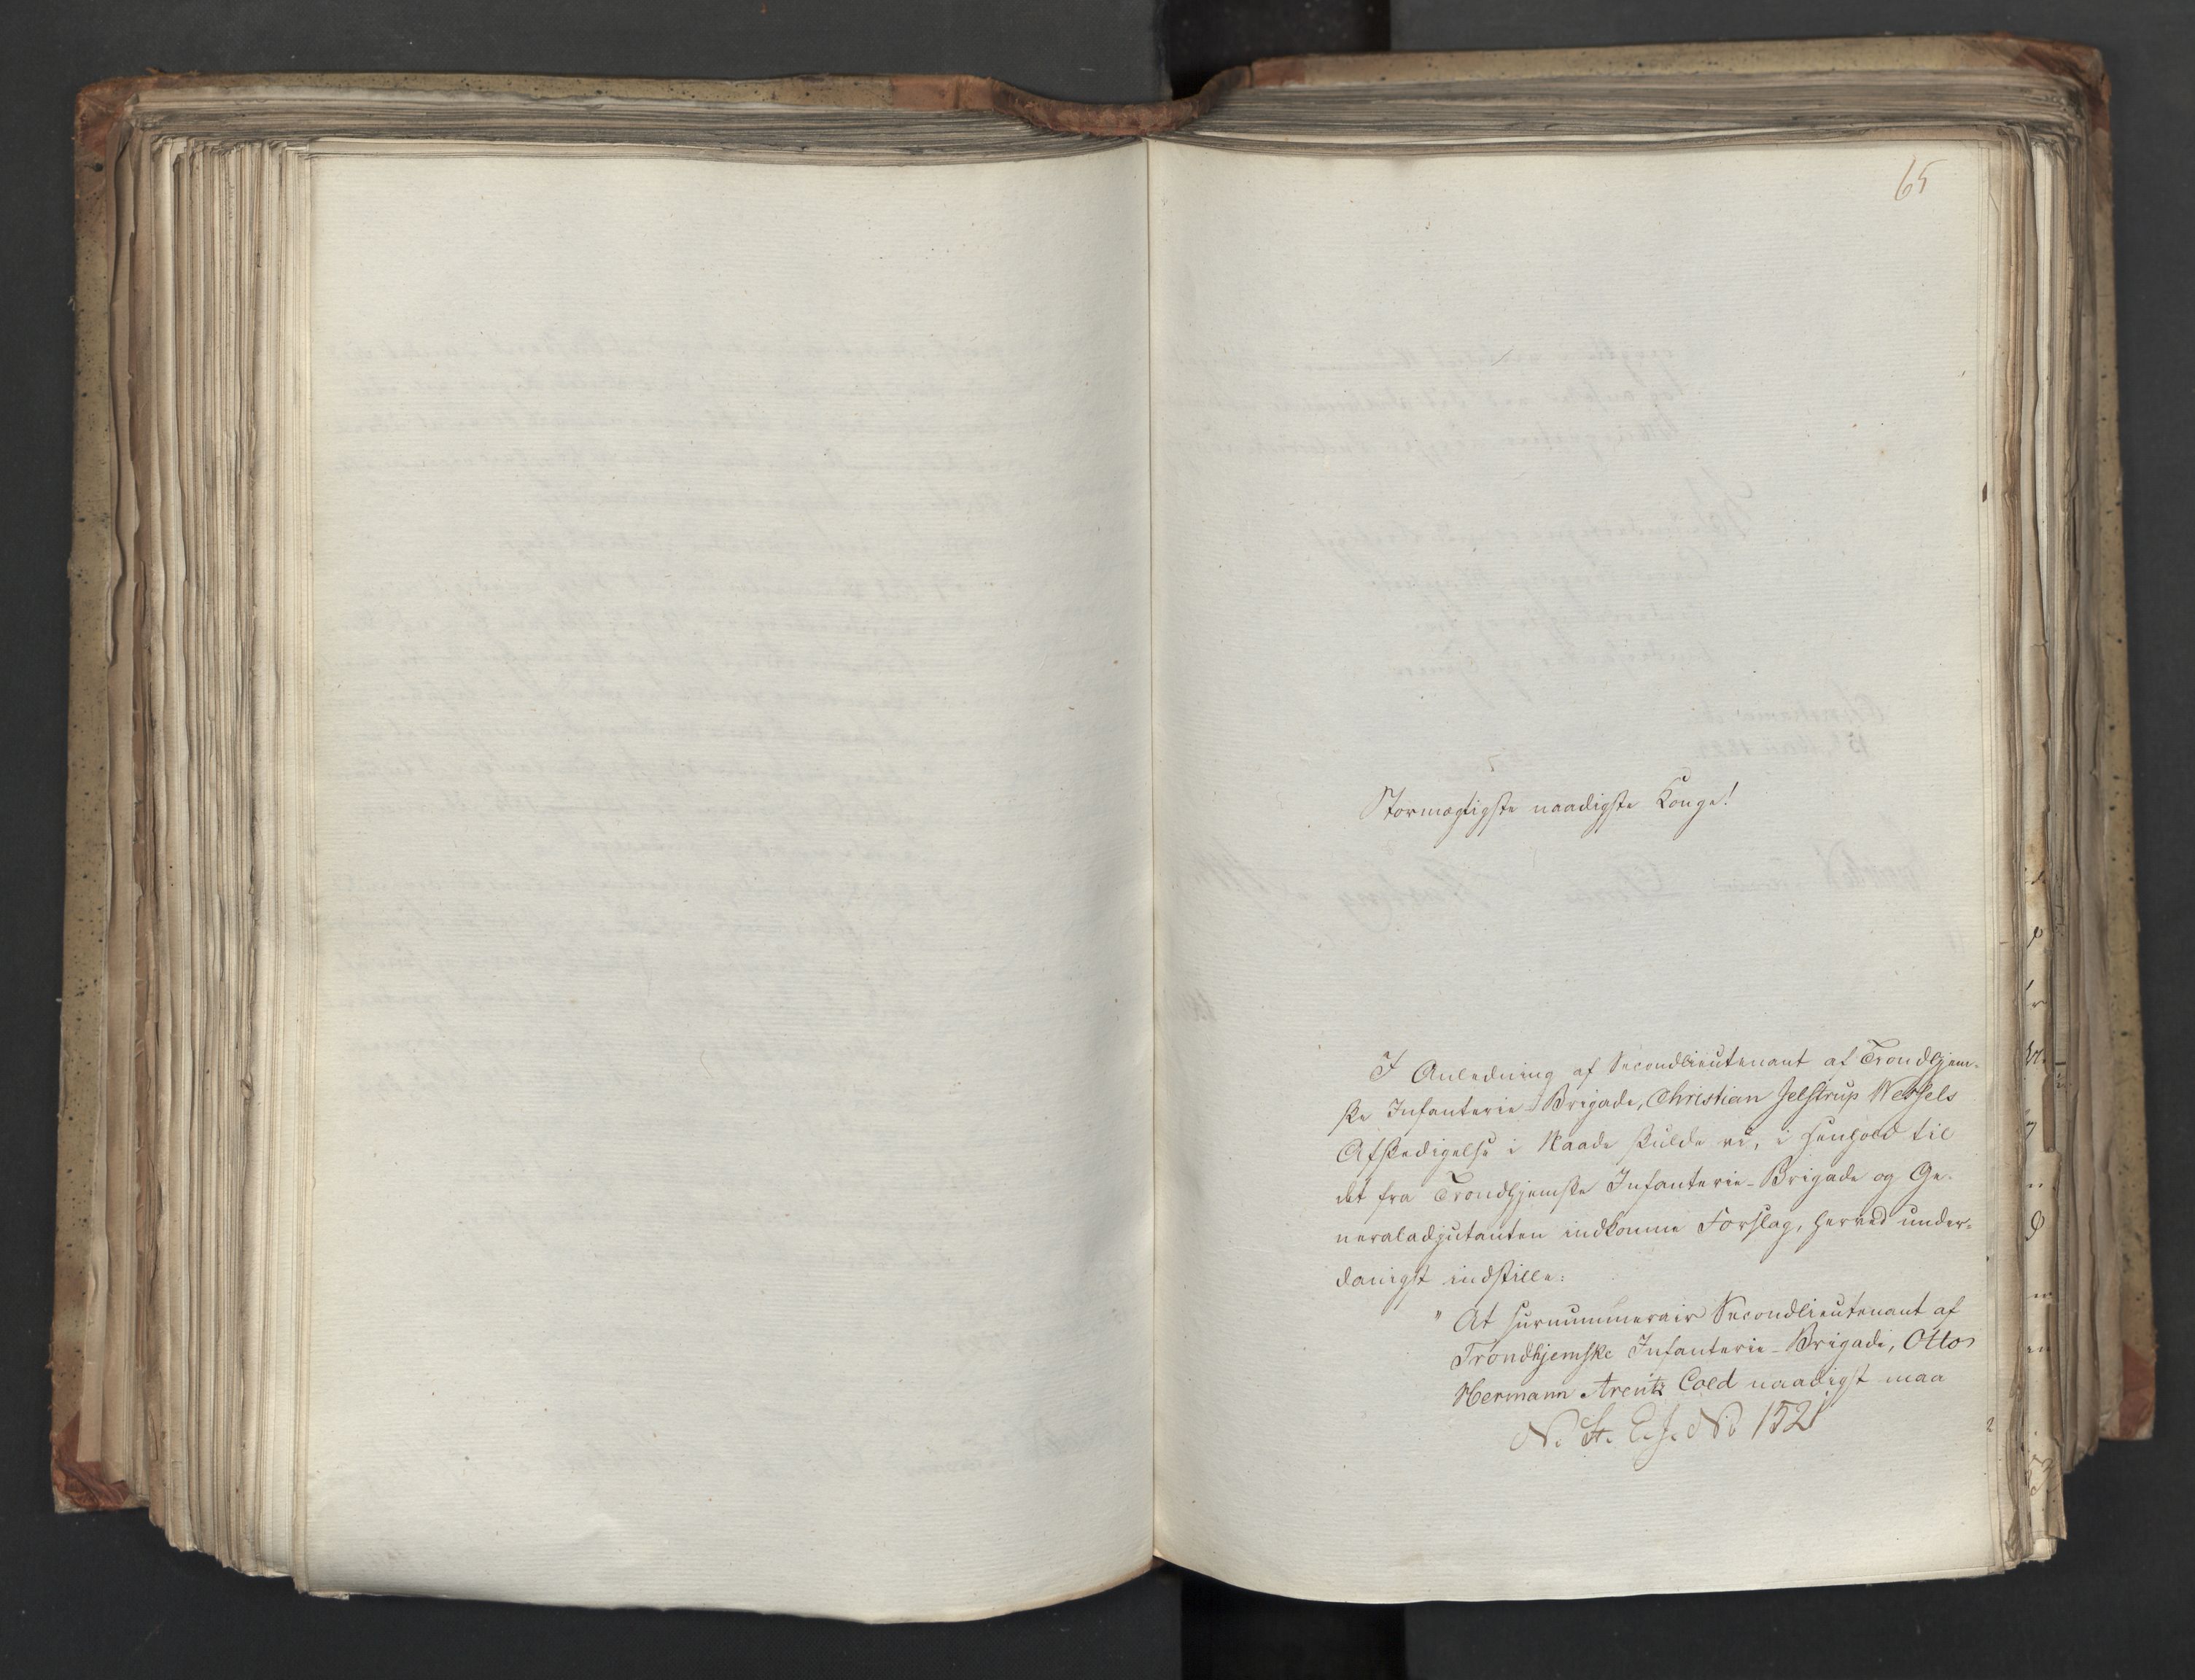 65
Stormægtigste naadigste Konge!
I Anledning af Secondlieutenant af Trondhjem-
ske Infanterie-Brigade, Christian Jelstrup Wessels
Afskedigelse i Naade skulde vi, i Henhold til
det fra Trondhjemske Infanterie-Brigade og Ge-
neraladjutanten indkomne Forslag, herved under-
danigst indstille:
"At surnummerair Secondlieutenant af
Trondhjemske Infanterie-Brigade, Otto
Hermann Arentz Cold naadigst maa
N. St. E. J. No 152